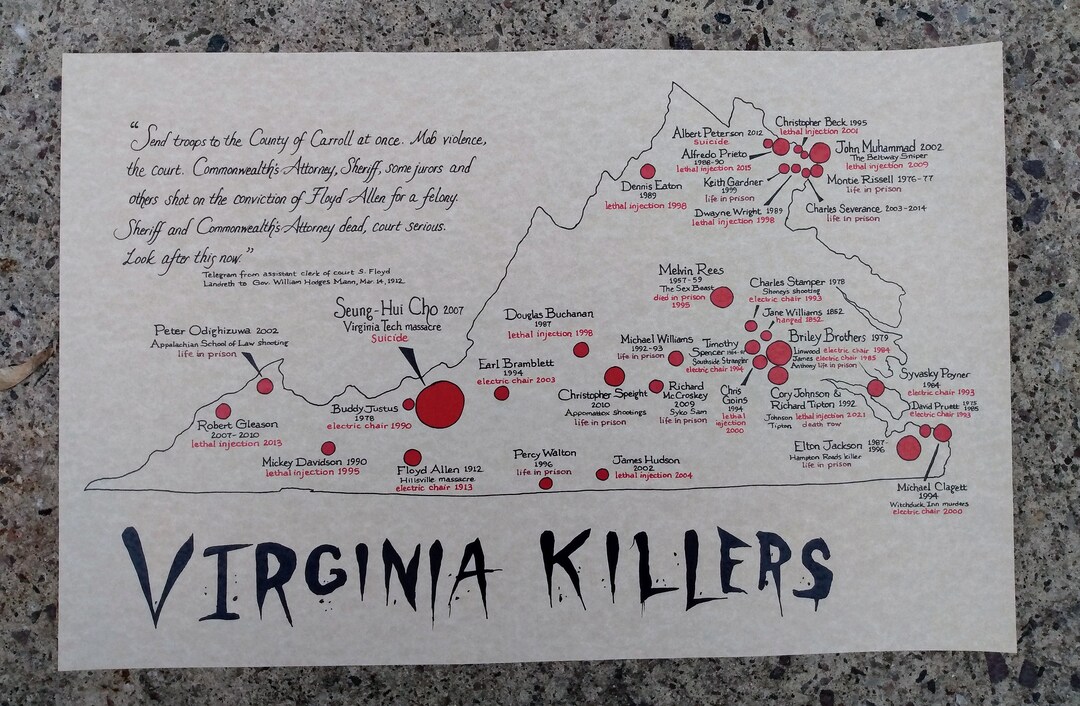 “Send troops to the County of Carroll at once. Mob violence,
the court. Commonwealth's Attorney, Sheriff, some jurors and
others shot on the conviction of Floyd Allen for a felony.
Sheriff and Commonwealth's Attorney dead, court serious.
Look after this now.”
Telegram from assistant clerk of court S. Floyd
Landreth to Gov. William Hodges Mann, Mar. 14, 1912
Albert Peterson 2012
suicide
Christopher Beck 1995
lethal injection 2001
Alfredo Prieto
1988-90
lethal injection 2015
John Muhammad 2002
The Beltway Sniper
lethal injection 2009
Dennis Eaton
1989
lethal injection 1998
Keith Gardner
1999
life in prison
Montie Rissell 1976-77
life in prison
Dwayne Wright 1989
lethal injection 1998
Charles Severance 2003-2014
life in prison
Melvin Rees
1957-59
The Sex Beast
died in prison
1995
Charles Stamper 1978
Shoney's shooting
electric chair 1993
Jane Williams 1852
hanged 1852
Seung-Hui Cho 2007
Virginia Tech massacre
suicide
Douglas Buchanan
1987
lethal injection 1998
Peter Odighizuwa 2002
Appalachian School of Law shooting
life in prison
Michael Williams
1992-93
life in prison
Timothy
Spencer
Southside Strangler
electric chair 1994
Briley Brothers 1979
Linwood electric chair 1984
James electric chair 1985
Anthony life in prison
Earl Bramblett
1994
electric chair 2003
Christopher Speight
2010
Appomattox shootings
life in prison
Richard
McCroskey
2009
Syko Sam
life in prison
Chris
Goins
1994
lethal
injection
2000
Cory Johnson &
Richard Tipton 1992
Johnson lethal injection 2021
Tipton death row
Syvasky Poyner
1984
electric chair 1993
David Pruett 1975
1985
electric chair 1993
Buddy Justus
1978
electric chair 1990
Robert Gleason
2007-2010
lethal injection 2013
Mickey Davidson 1990
lethal injection 1995
Floyd Allen 1912
Hillsville massacre
electric chair 1913
Percy Walton
1996
life in prison
James Hudson
2002
lethal injection 2004
Elton Jackson 1987-
1996
Hampton Roads killer
life in prison
Michael Clagett
1994
Witchduck Inn murders
electric chair 2000
VIRGINIA KILLERS